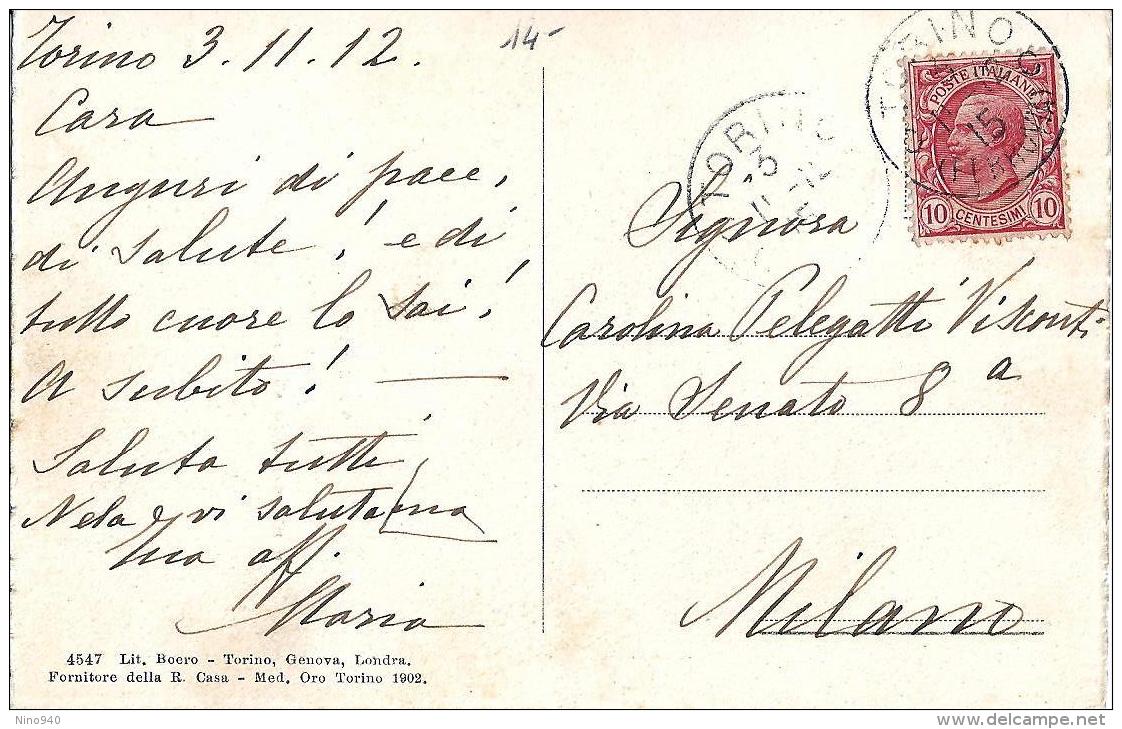 Torino 3.11.12.
14-
Cara
Auguri di pace,
di salute! e di
tutto cuore lo sai!
A subito!
Saluta tutti
Nela e vi saluta
Tua aff.
Maria
4547 Lit. Boero - Torino, Genova, Londra.
Fornitore della R. Casa - Med. Oro Torino 1902.
TORINO
15
POSTE ITALIANE
10 CENTESIMI 10
TORINO
3
Signora
Carolina Pelegatti Visconti
Via Senato 8 a
Milano
Nino940
http://www.delcampe.net